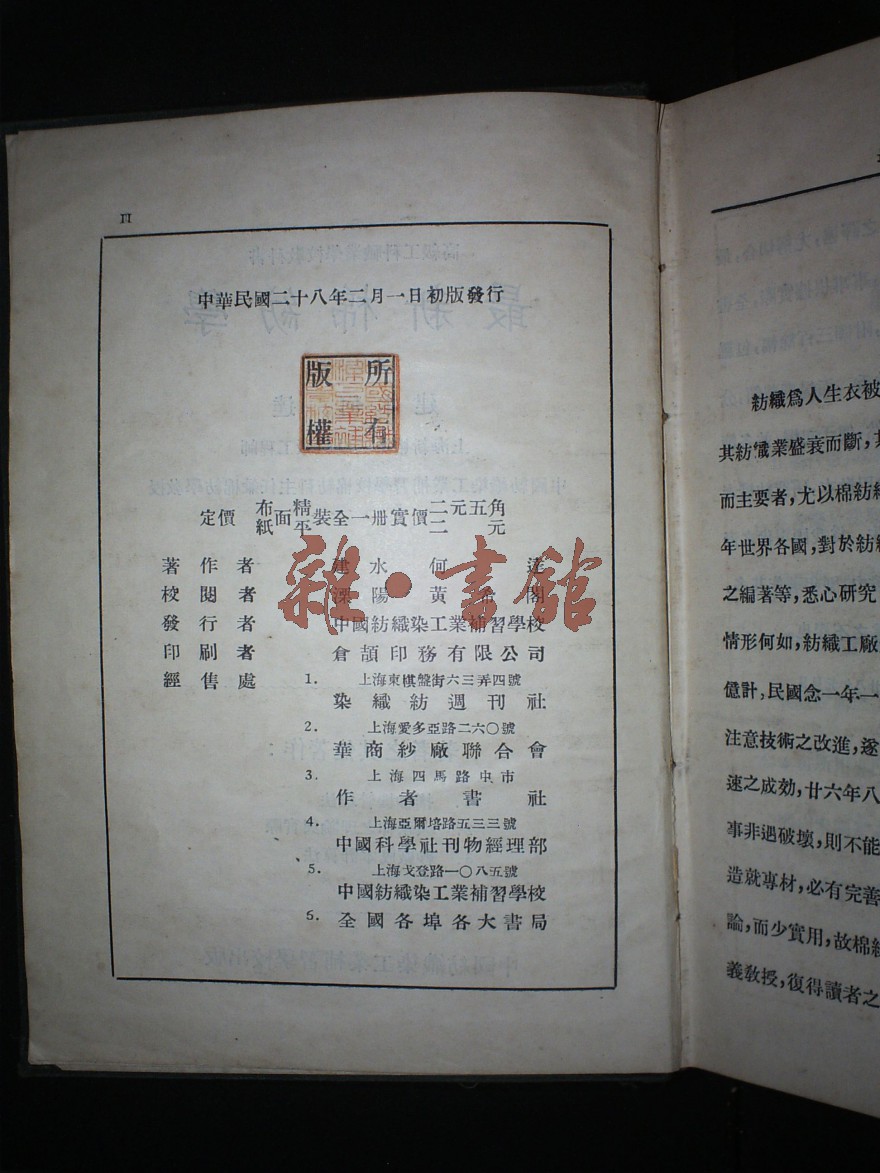 II
中華民國二十八年二月一日初版發行
版所
權有
定價 布紙面精平裝全一冊實價二元五角二元
著作者 建水何達
校閱者 溧陽黃希閣
發行者 中國紡織染工業補習學校
印刷者 倉頡印務有限公司
經售處 1. 上海東棋盤街六三弄四號
染織紡週刊社
2. 上海愛多亞路二六〇號
華商紗廠聯合會
3. 上海四馬路中市
作者書社
4. 上海亞爾培路五三三號
中國科學社刊物經理部
5. 上海戈登路一〇八五號
中國紡織染工業補習學校
5. 全國各埠各大書局
雜·書館
紡織爲人生衣被
其紡織業盛衰而斷，
而主要者，尤以棉紡織
年世界各國，對於紡
之編著等，悉心研究
情形何如，紡織工廠
億計，民國念一年一
注意技術之改進，遂
速之成効，廿六年八
事非遇破壞，則不能
造就專材，必有完善
論，而少實用，故棉
義敎授，復得讀者之